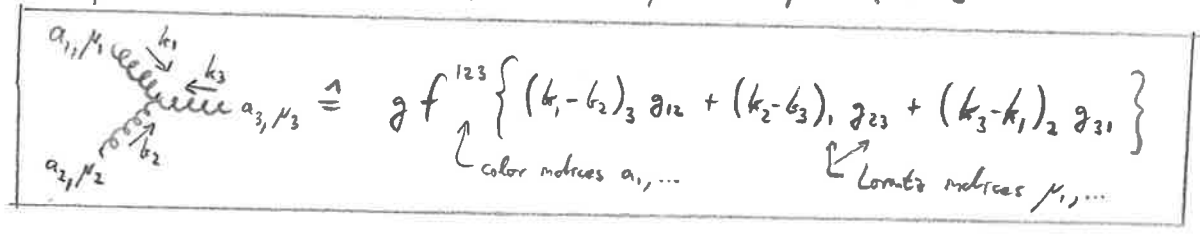 a₁, μ₁ k₁ k₃ a₃, μ₃ ≙ g f¹²³ { (k₁ - k₂)₃ g₁₂ + (k₂ - k₃)₁ g₂₃ + (k₃ - k₁)₂ g₃₁ }
a₂, μ₂ k₂ color indices a₁, ... Lorentz indices μ₁, ...